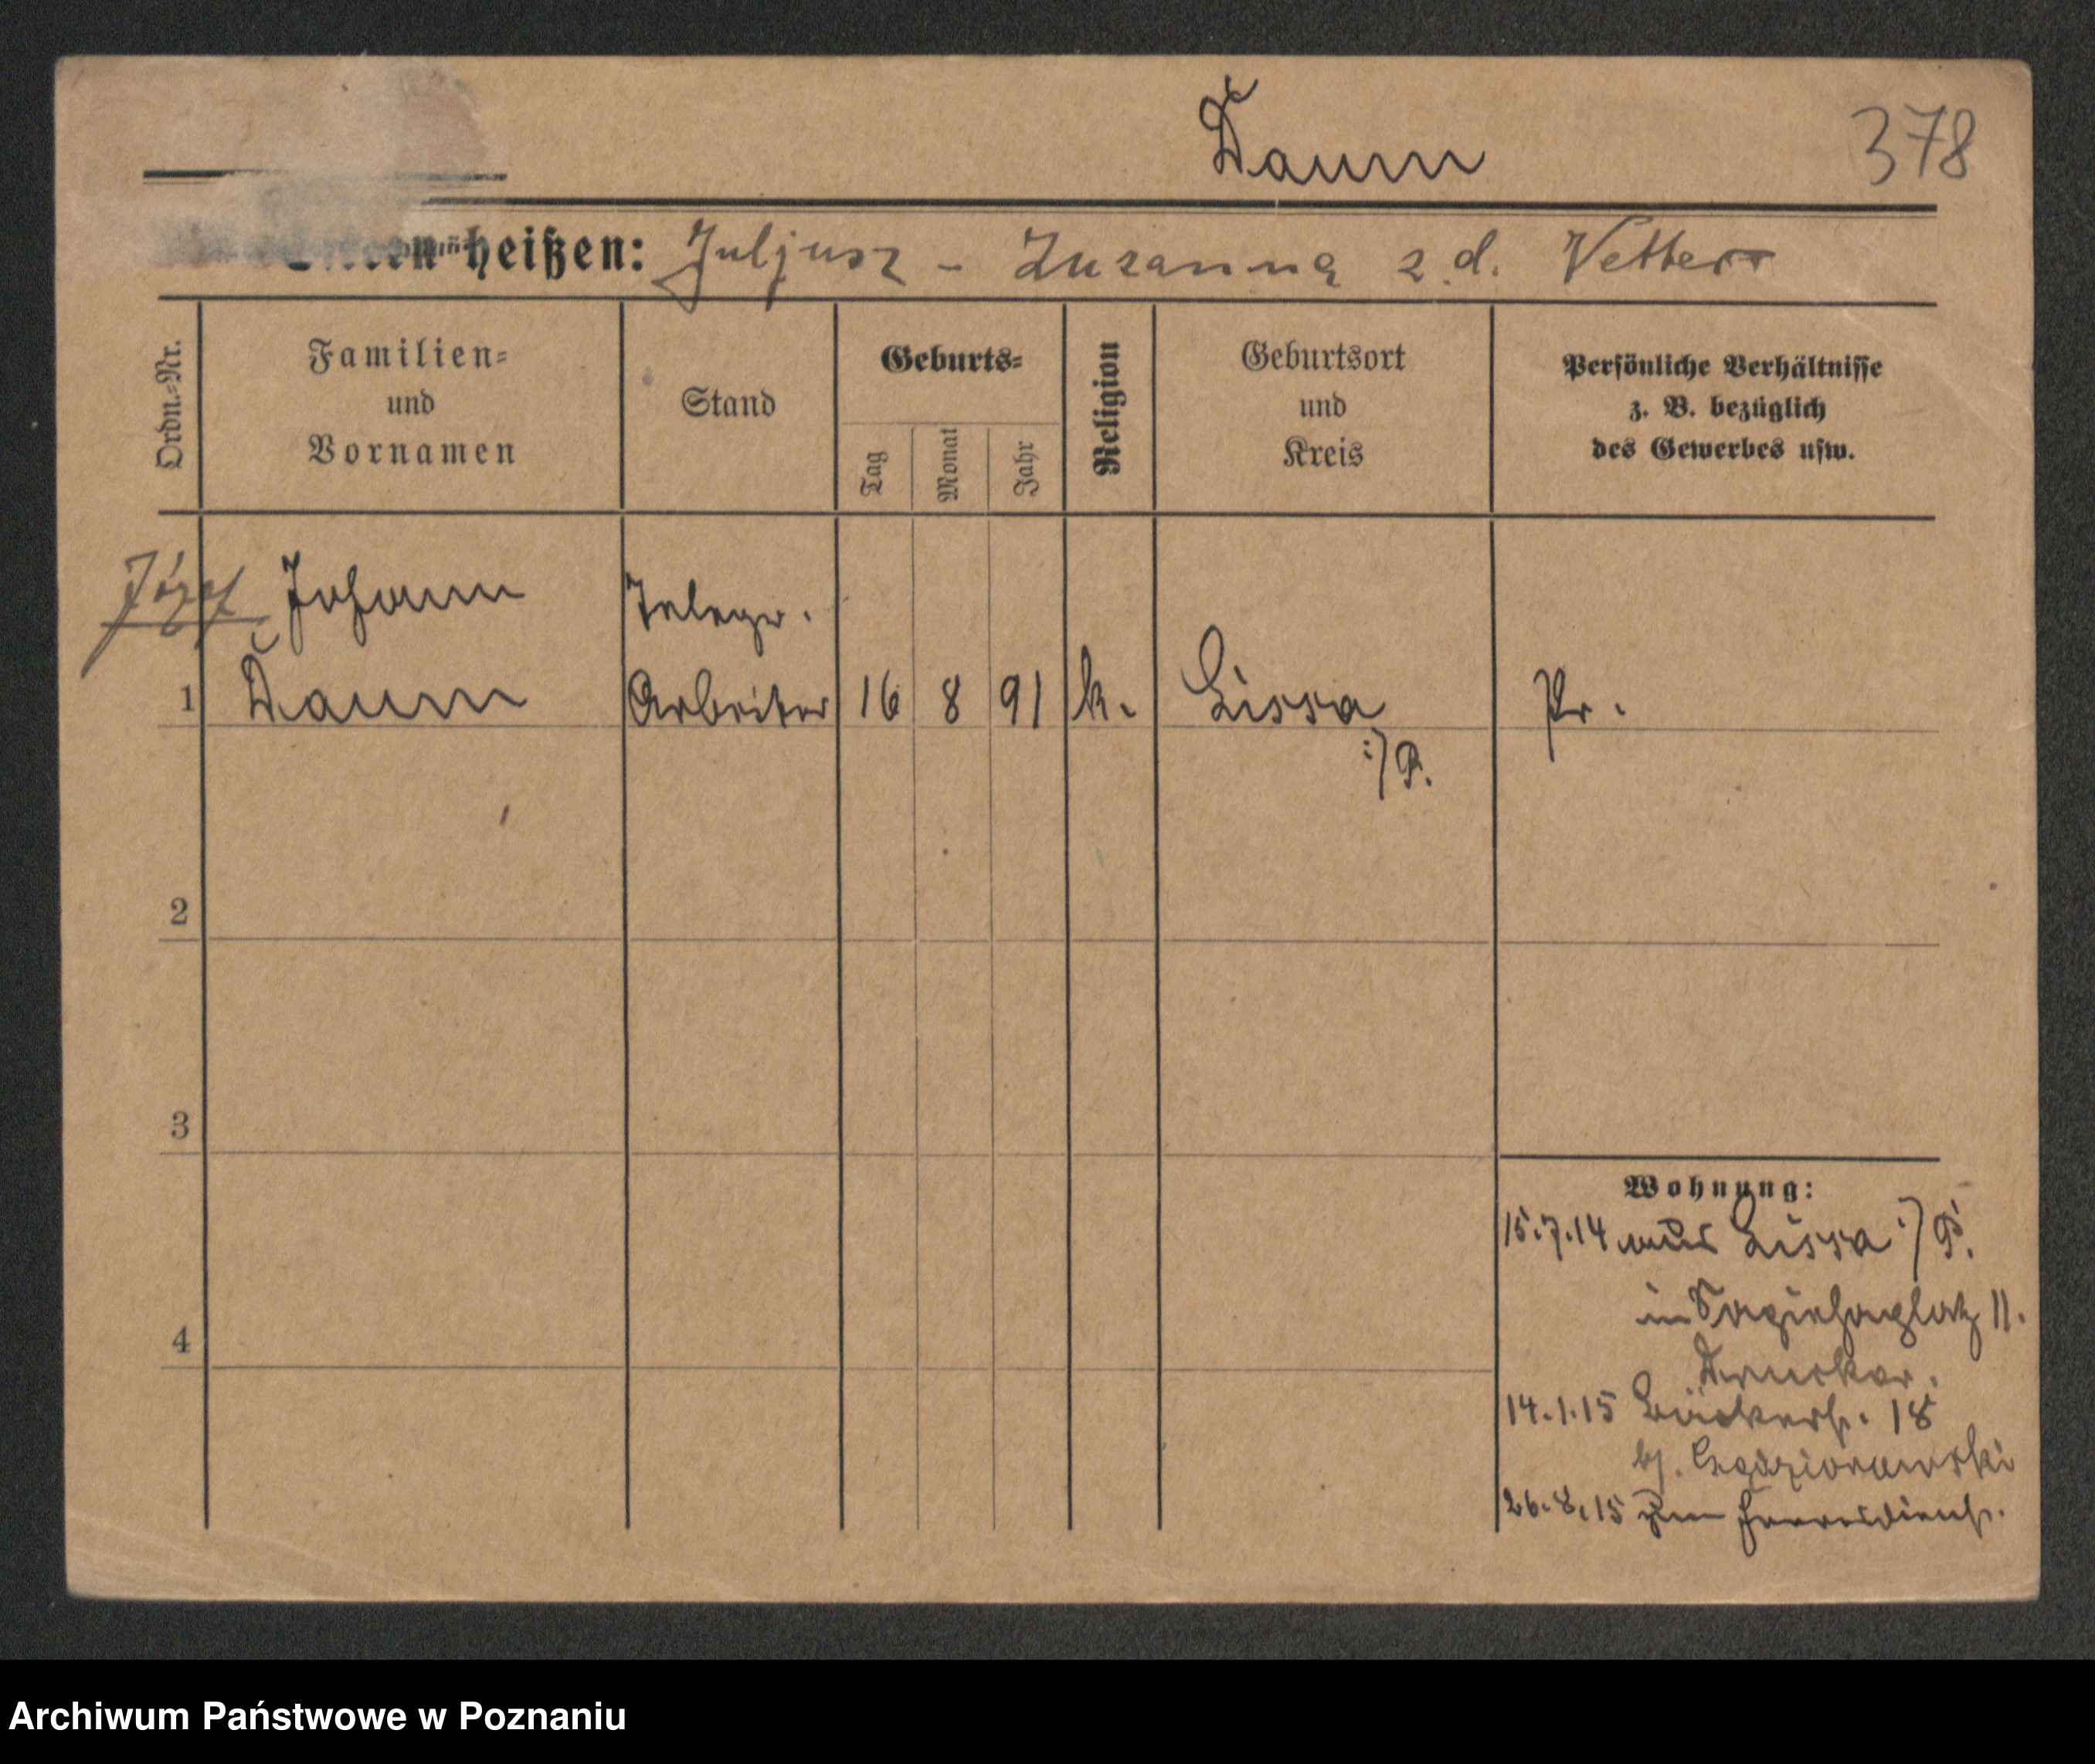 Daum
378
Eltern heißen: Juljusz - Zuzanna z d. Vetter
Ordn.-Nr.
Familien-
und
Vornamen
Stand
Geburts-
Tag
Monat
Jahr
Religion
Geburtsort
und
Kreis
Persönliche Verhältnisse
z. B. bezüglich
des Gewerbes usw.
Józef Johann
Telegr.
1 Daum Arbeiter 16 8 91 k. Lissa Pr.
i/P.
2
3
4
Wohnung:
15.7.14 aus Lissa i/P.
in Sapiehaplatz 11.
14.1.15 Bäckerstr. 18
b/.
26.8.15 zum Heeresdienst.
Archiwum Państwowe w Poznaniu